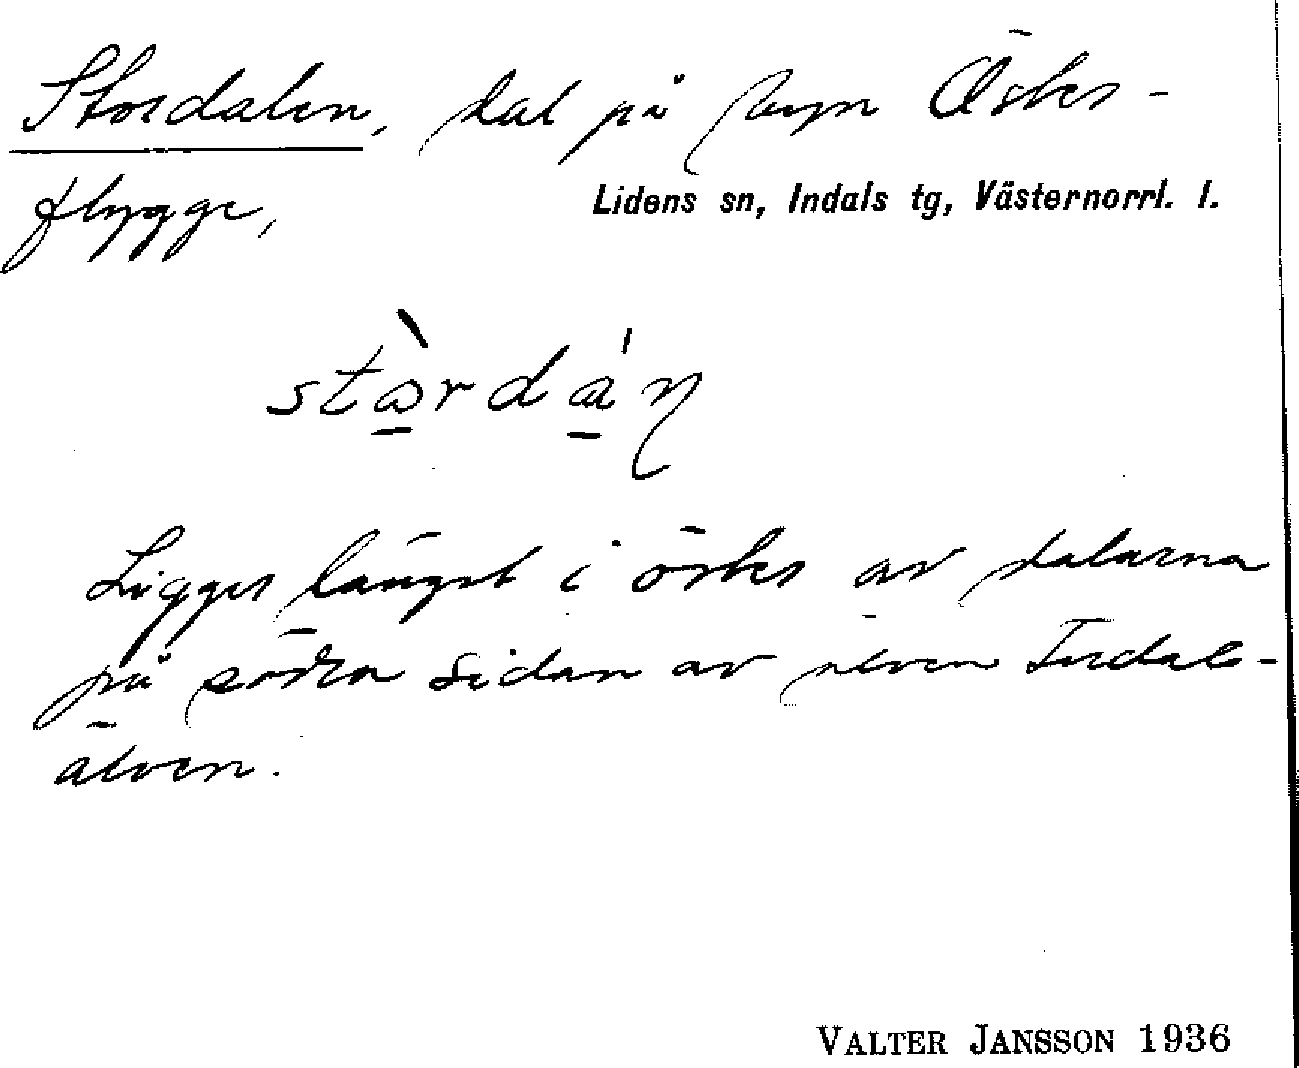 Stordalen, dal på byn Öster-
flygge,
Lidens sn, Indals tg, Västernorrl. l.
Ligger längst i öster av dalarna
på södra sidan av älven Indals-
älven.
VALTER JANSSON 1936